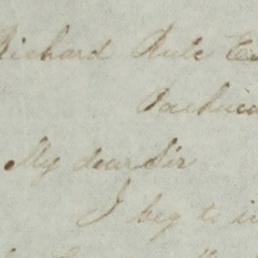 Richard Rule E
Pachuca
My dear Sir
I beg to i